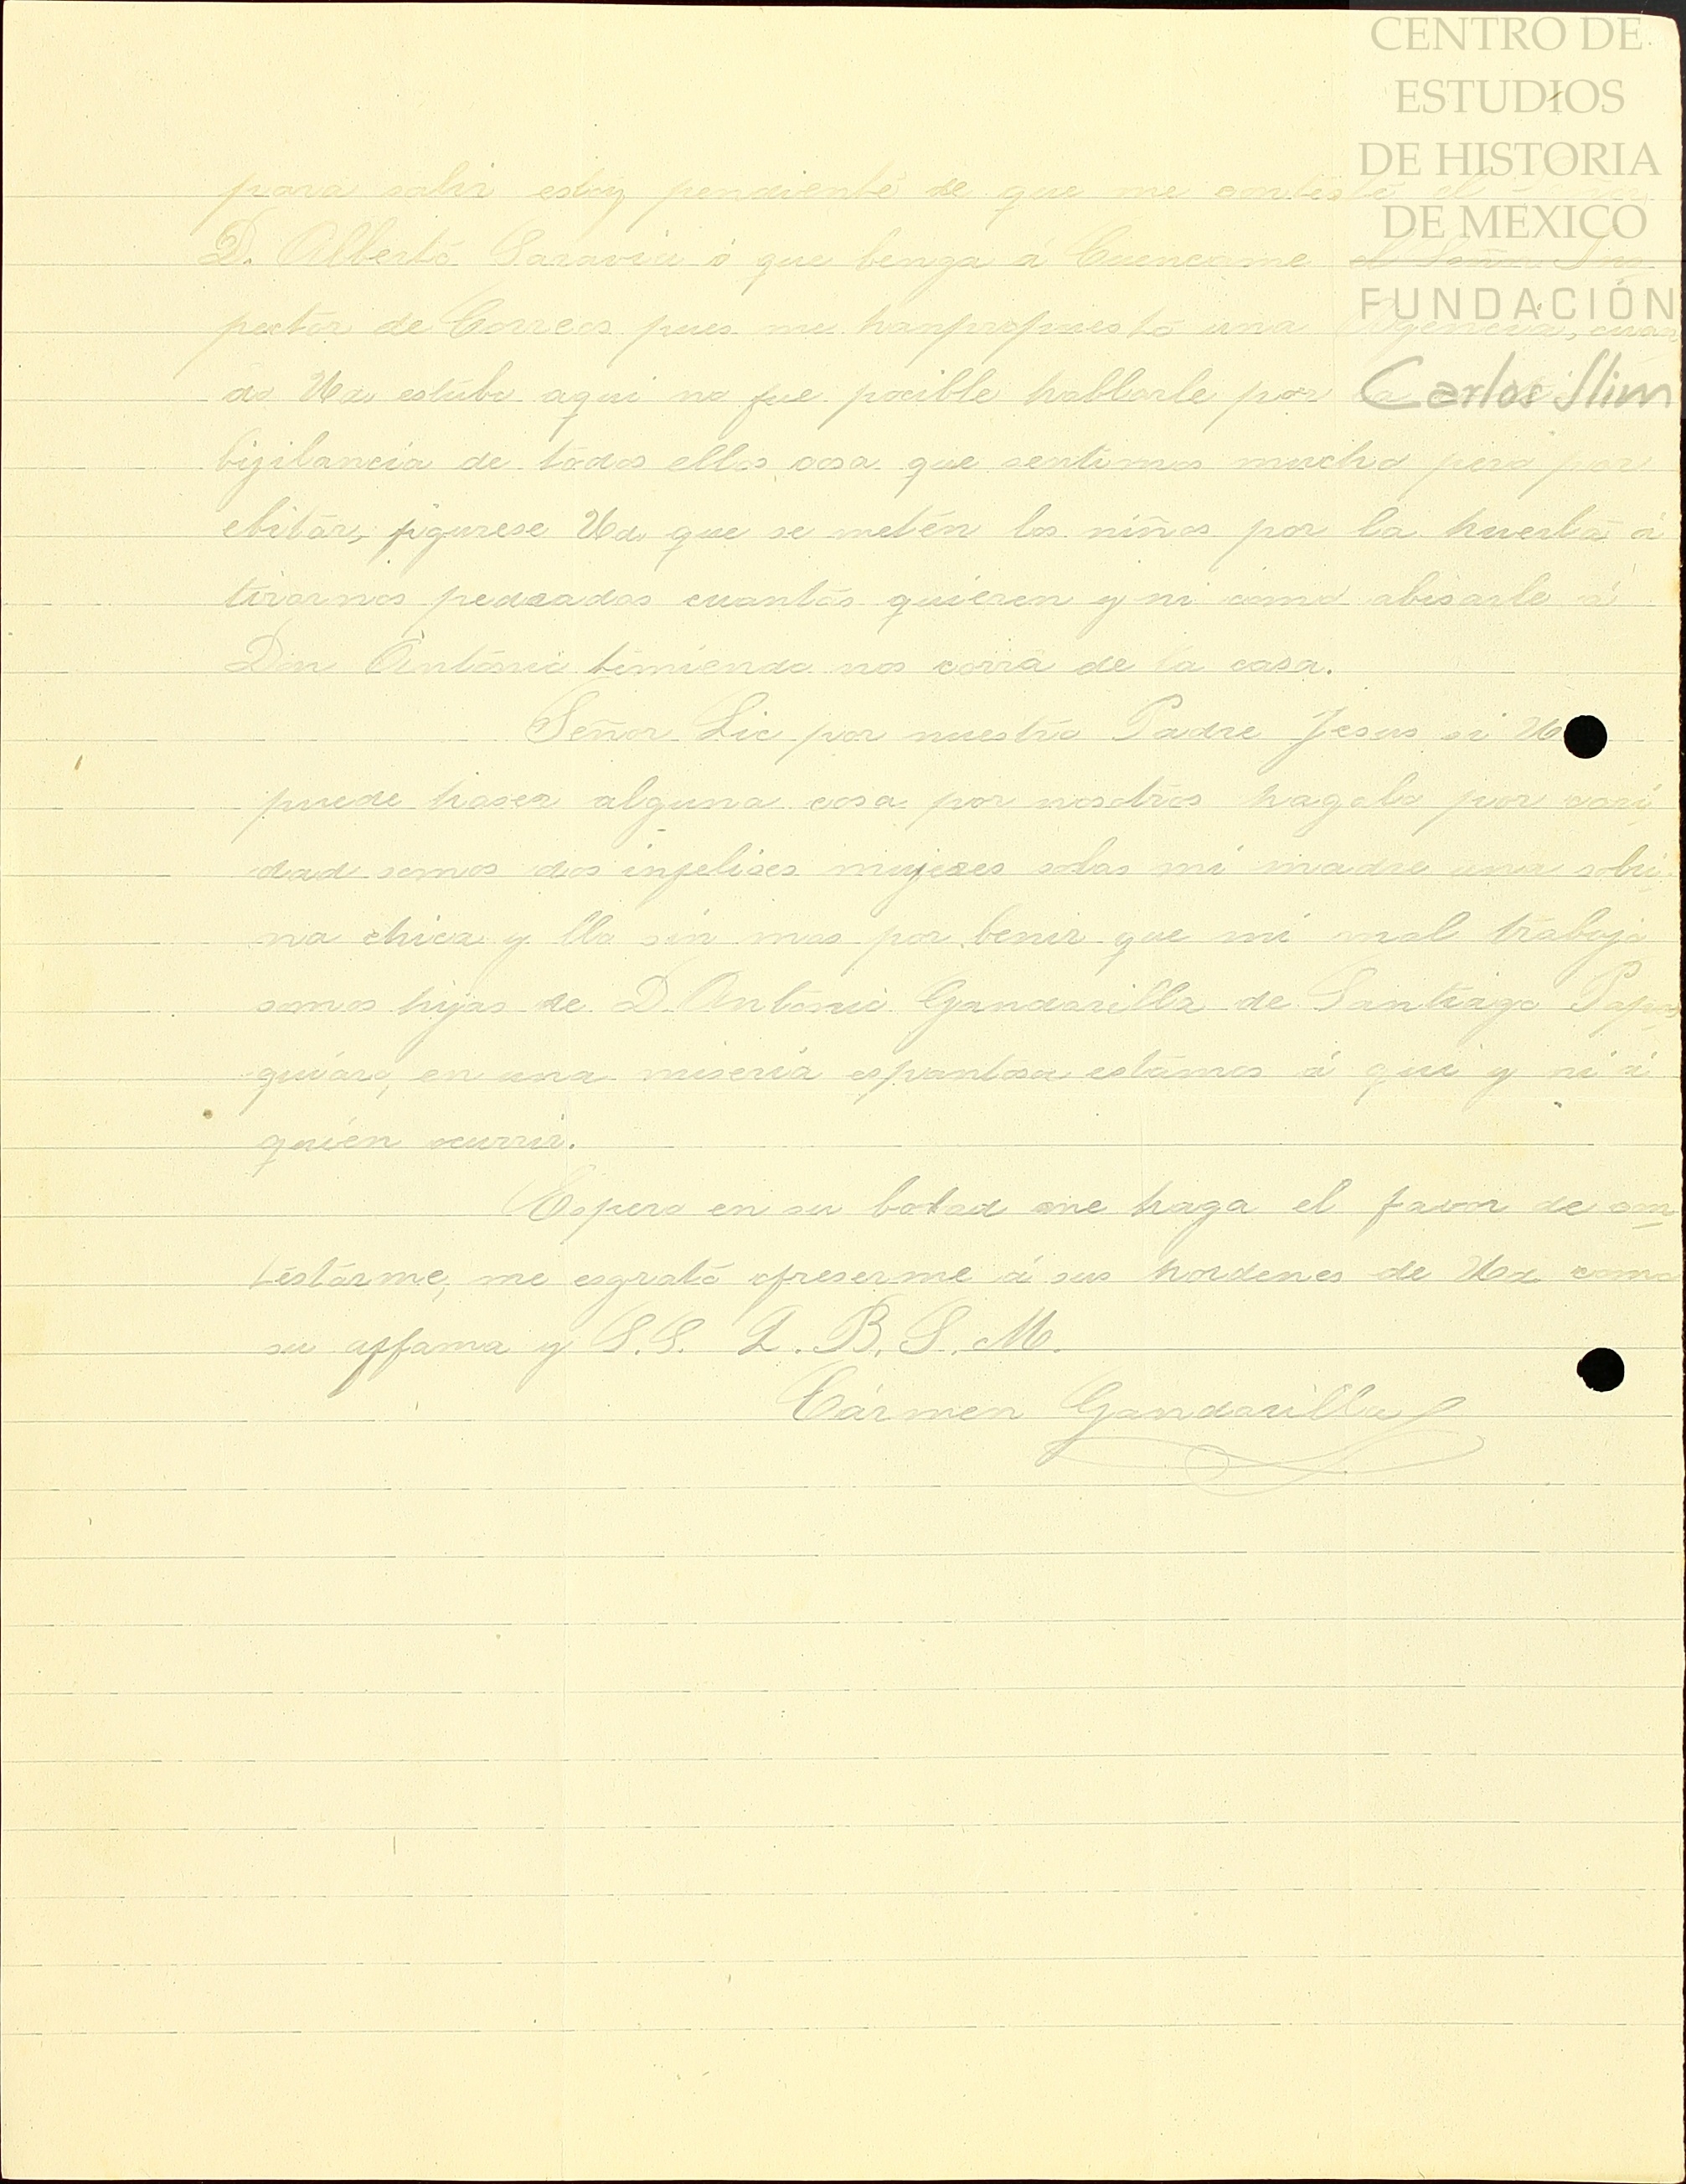 CENTRO DE
ESTUDIOS
DE HISTORIA
DE MÉXICO
FUNDACIÓN
Carlos Slim
para salir estoy pendiente de que me conteste el Señor
D. Alberto Saravia ó que benga á Cuencame el Señor Ins
pector de Correos pues me hanpropuesto una Agencia, cuan
do Ud. estubo aqui no fue pocible hablarle por la
bijilancia de todos ellos cosa que sentimos mucho pero por
ebitar, figurese Ud. que se metén los niños por la huerta á
tirarnos pedradas cuantas quieren y ni como abisarle á
Don Antonio temiendo nos corra de la casa.
Señor Lic por nuestro Padre Jesus si U
puede haser alguna cosa por nosotros hagalo por cari
dad somos dos infelises mujeres solas mi madre una sobri
na chica y llo sin mas por benir que mi mal trabajo
somos hijas de D. Antonio Gandarilla de Santiago Papas
quiaro, en una miseria espantosa estamos á qui y ni á
quién ocurrir.
Espero en su botad me haga el favor de con
testárme, me esgrato ofreserme á sus hordenes de Ud. como
su affama y S.S. Q. B. S. M.
Cármen Gandarilla